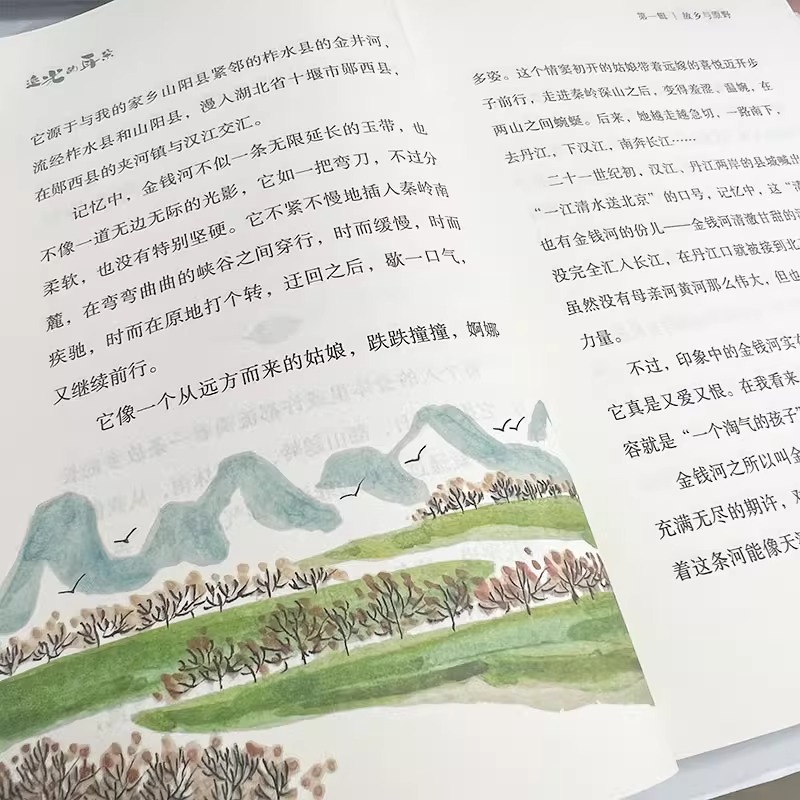 追光的耳朵
它源于与我的家乡山阳县紧邻的柞水县的金井河，
流经柞水县和山阳县，漫入湖北省十堰市郧西县，
在郧西县的夹河镇与汉江交汇。
记忆中，金钱河不似一条无限延长的玉带，也
不像一道无边无际的光影，它如一把弯刀，不过分
柔软，也没有特别坚硬。它不紧不慢地插入秦岭南
麓，在弯弯曲曲的峡谷之间穿行，时而缓慢，时而
疾驰，时而在原地打个转，迂回之后，歇一口气，
又继续前行。
它像一个从远方而来的姑娘，跌跌撞撞，婀娜
第一辑 | 故乡与原野
多姿。这个情窦初开的姑娘带着远嫁的喜悦迈开步
子前行，走进秦岭深山之后，变得羞涩、温婉，在
两山之间蜿蜒。后来，她越走越急切，一路南下，
去丹江，下汉江，南奔长江……
二十一世纪初，汉江、丹江两岸的县城喊出
“一江清水送北京”的口号，记忆中，这“清
也有金钱河的份儿——金钱河清澈甘甜的
没完全汇入长江，在丹江口就被接到北
虽然没有母亲河黄河那么伟大，但也
力量。
不过，印象中的金钱河实在
它真是又爱又恨。在我看来
容就是“一个淘气的孩子”
金钱河之所以叫金
充满无尽的期许，
着这条河能像天